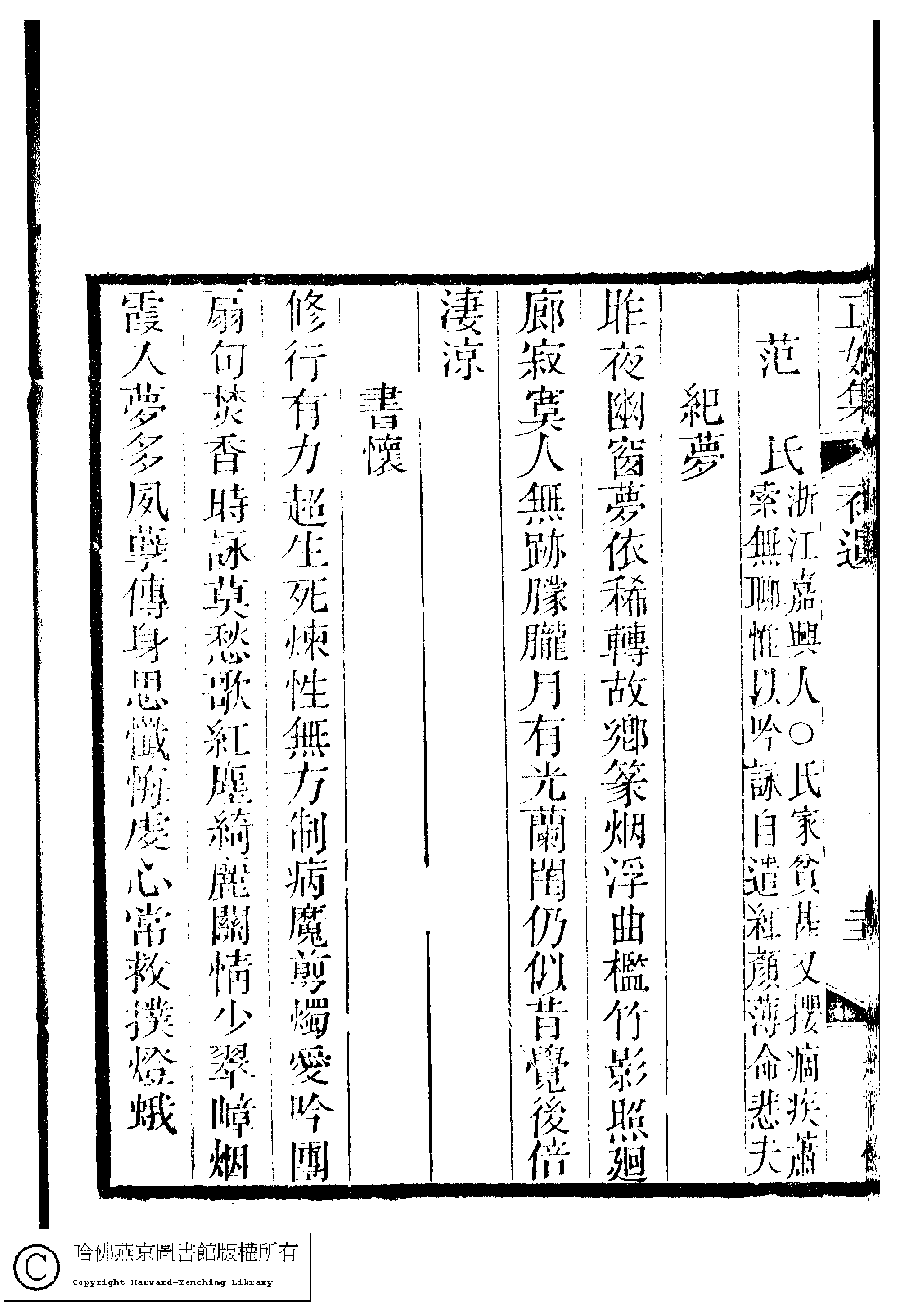 正始集 補遺 三
范 氏 浙江嘉興人○氏家貧甚又攖痼疾蕭
索無聊惟以吟詠自遣紅顏薄命悲夫
紀夢
昨夜幽窗夢依稀轉故鄉篆烟浮曲檻竹影照廻
廊寂寞人無跡朦朧月有光蘭閨仍似昔覺後倍
淒涼
書懷
修行有力超生死煉性無方制病魔剪燭愛吟團
扇句焚香時詠莫愁歌紅塵綺麗關情少翠嶂烟
霞入夢多夙孽傳身思懺悔虔心常救撲燈蛾
© 哈佛燕京圖書館版權所有
Copyright Harvard-Yenching Library